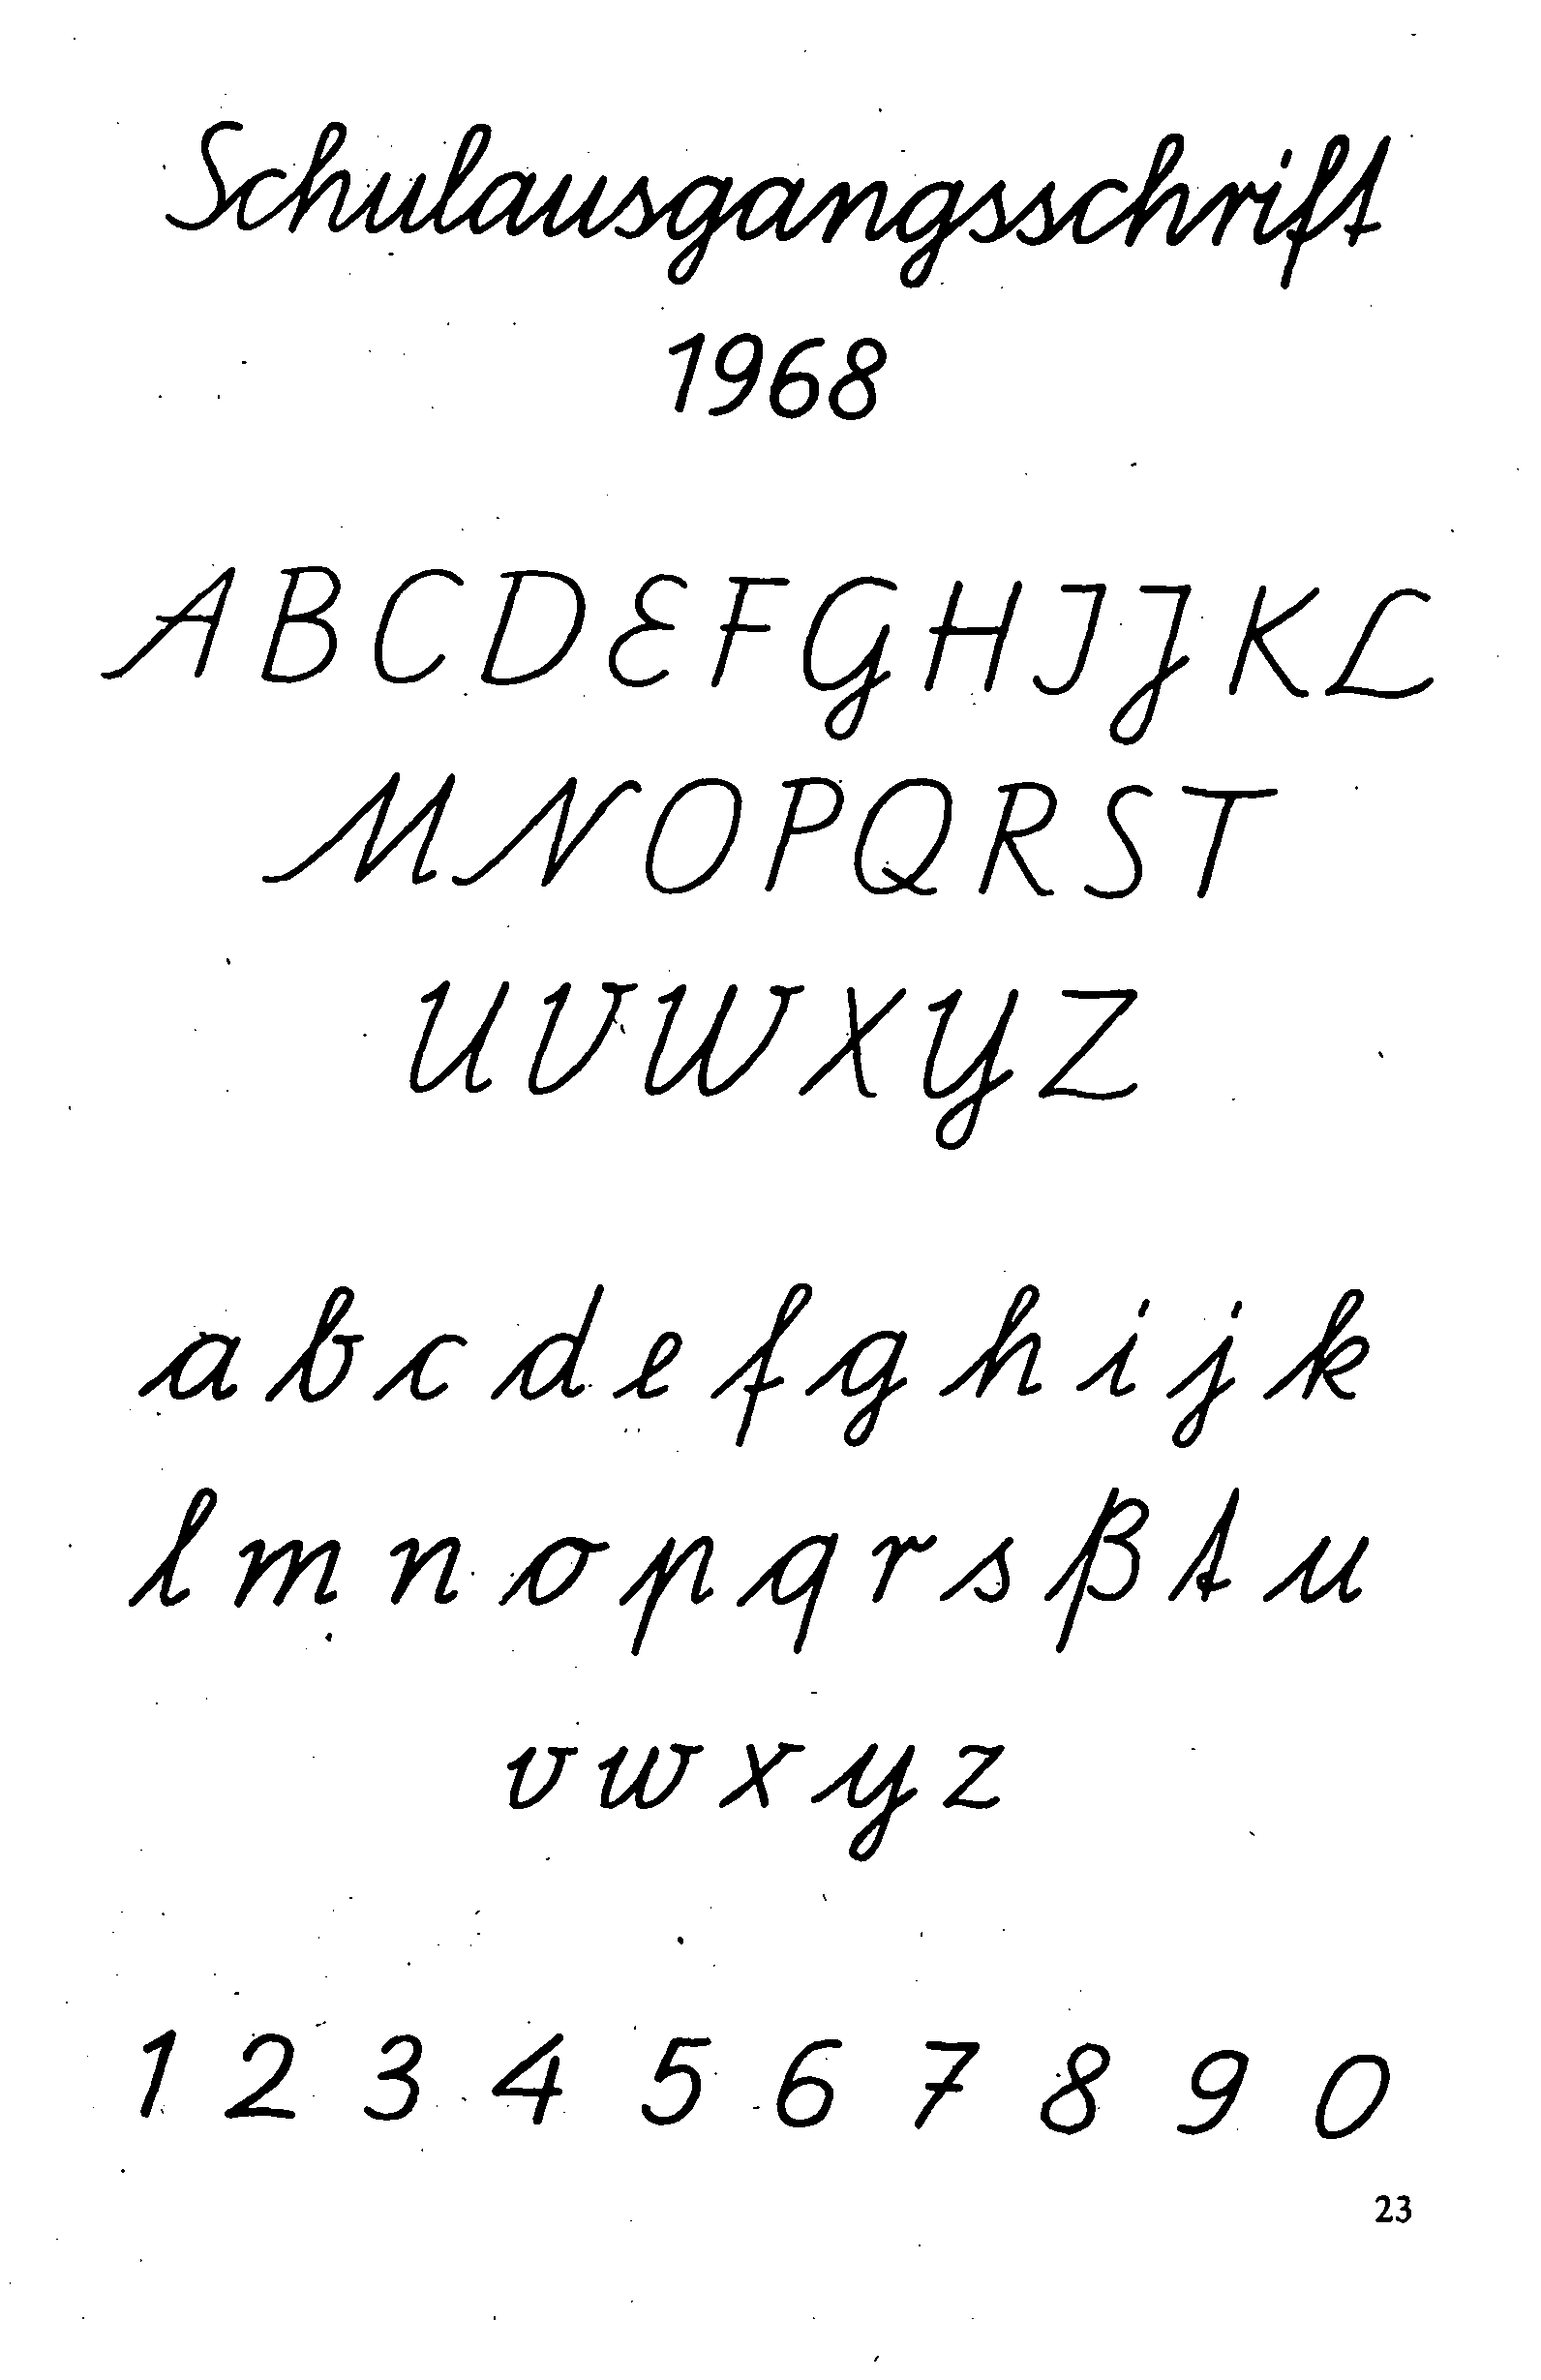 Schulausgangsschrift
1968
A B C D E F G H I J K L
M N O P Q R S T
U V W X Y Z
a b c d e f g h i j k
l m n o p q r s ß t u
v w x y z
1 2 3 4 5 6 7 8 9 0
23